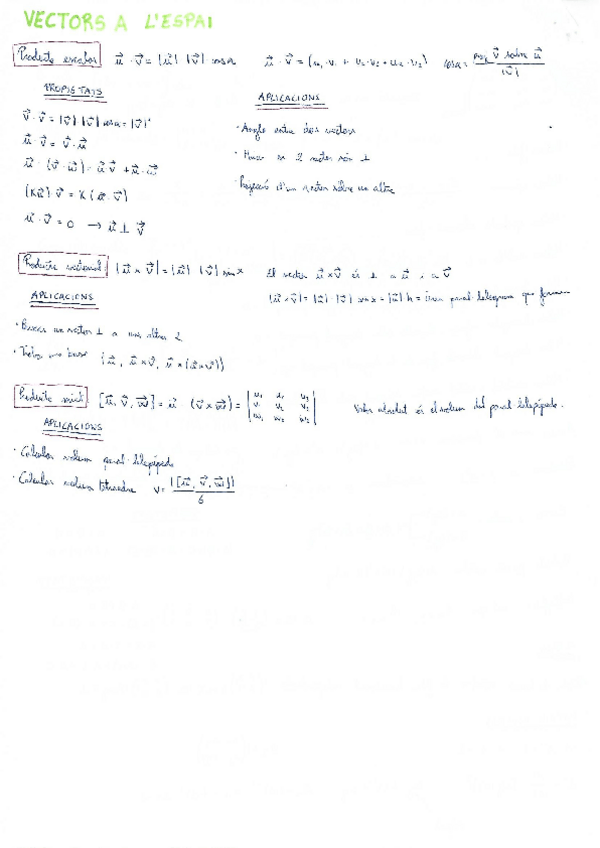 VECTORS A L'ESPAI
Producte escalar u⃗ · v⃗ = |u⃗| |v⃗| cos α u⃗ · v⃗ = (u₁·v₁ + u₂·v₂ + u₃·v₃) cos α = v⃗ sobre u⃗ / |v⃗|
PROPIETATS
APLICACIONS
v⃗ · v⃗ = |v⃗| |v⃗| cos α = |v⃗|²
u⃗ · v⃗ = v⃗ · u⃗
u⃗ · (v⃗ · w⃗) = u⃗ v⃗ + u⃗ · w⃗
(K u⃗) v⃗ = K (u⃗ · v⃗)
u⃗ · v⃗ = 0 → u⃗ ⊥ v⃗
· Angle entre dos vectors
· 2 vectors són ⊥
· Projecció d'un vector sobre un altre
Producte vectorial: |u⃗ × v⃗| = |u⃗| |v⃗| sin α El vector u⃗ × v⃗ és ⊥ a u⃗ i a v⃗
|u⃗ × v⃗| = |u⃗| · |v⃗| sin α = |u⃗| h = àrea paral·lelogram que formen
APLICACIONS
· Buscar un vector ⊥ a uns altres 2
· Trobar una base (u⃗, u⃗ × v⃗, u⃗ × (u⃗ × v⃗))
Producte mixt [u⃗, v⃗, w⃗] = u⃗ (v⃗ × w⃗) = | u₁ u₂ u₃ | Valor absolut és el volum del paral·lelepípede.
| v₁ v₂ v₃ |
| w₁ w₂ w₃ |
APLICACIONS
· Calcular volum paral·lelepípede
· Calcular volum tetraedre V = |[u⃗, v⃗, w⃗]| / 6